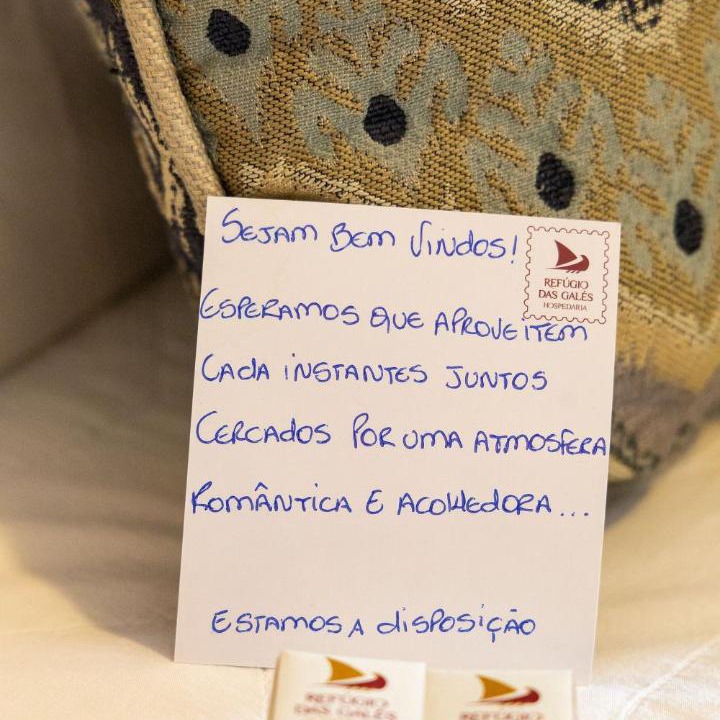 Sejam Bem Vindos!
REFÚGIO
DAS GALÉS
HOSPEDARIA
Esperamos que aproveitem
Cada instantes juntos
Cercados por uma atmosfera
Romântica e acolhedora...
Estamos a disposição
REFÚGIO
DAS GALÉS
REFÚGIO
DAS GALÉS